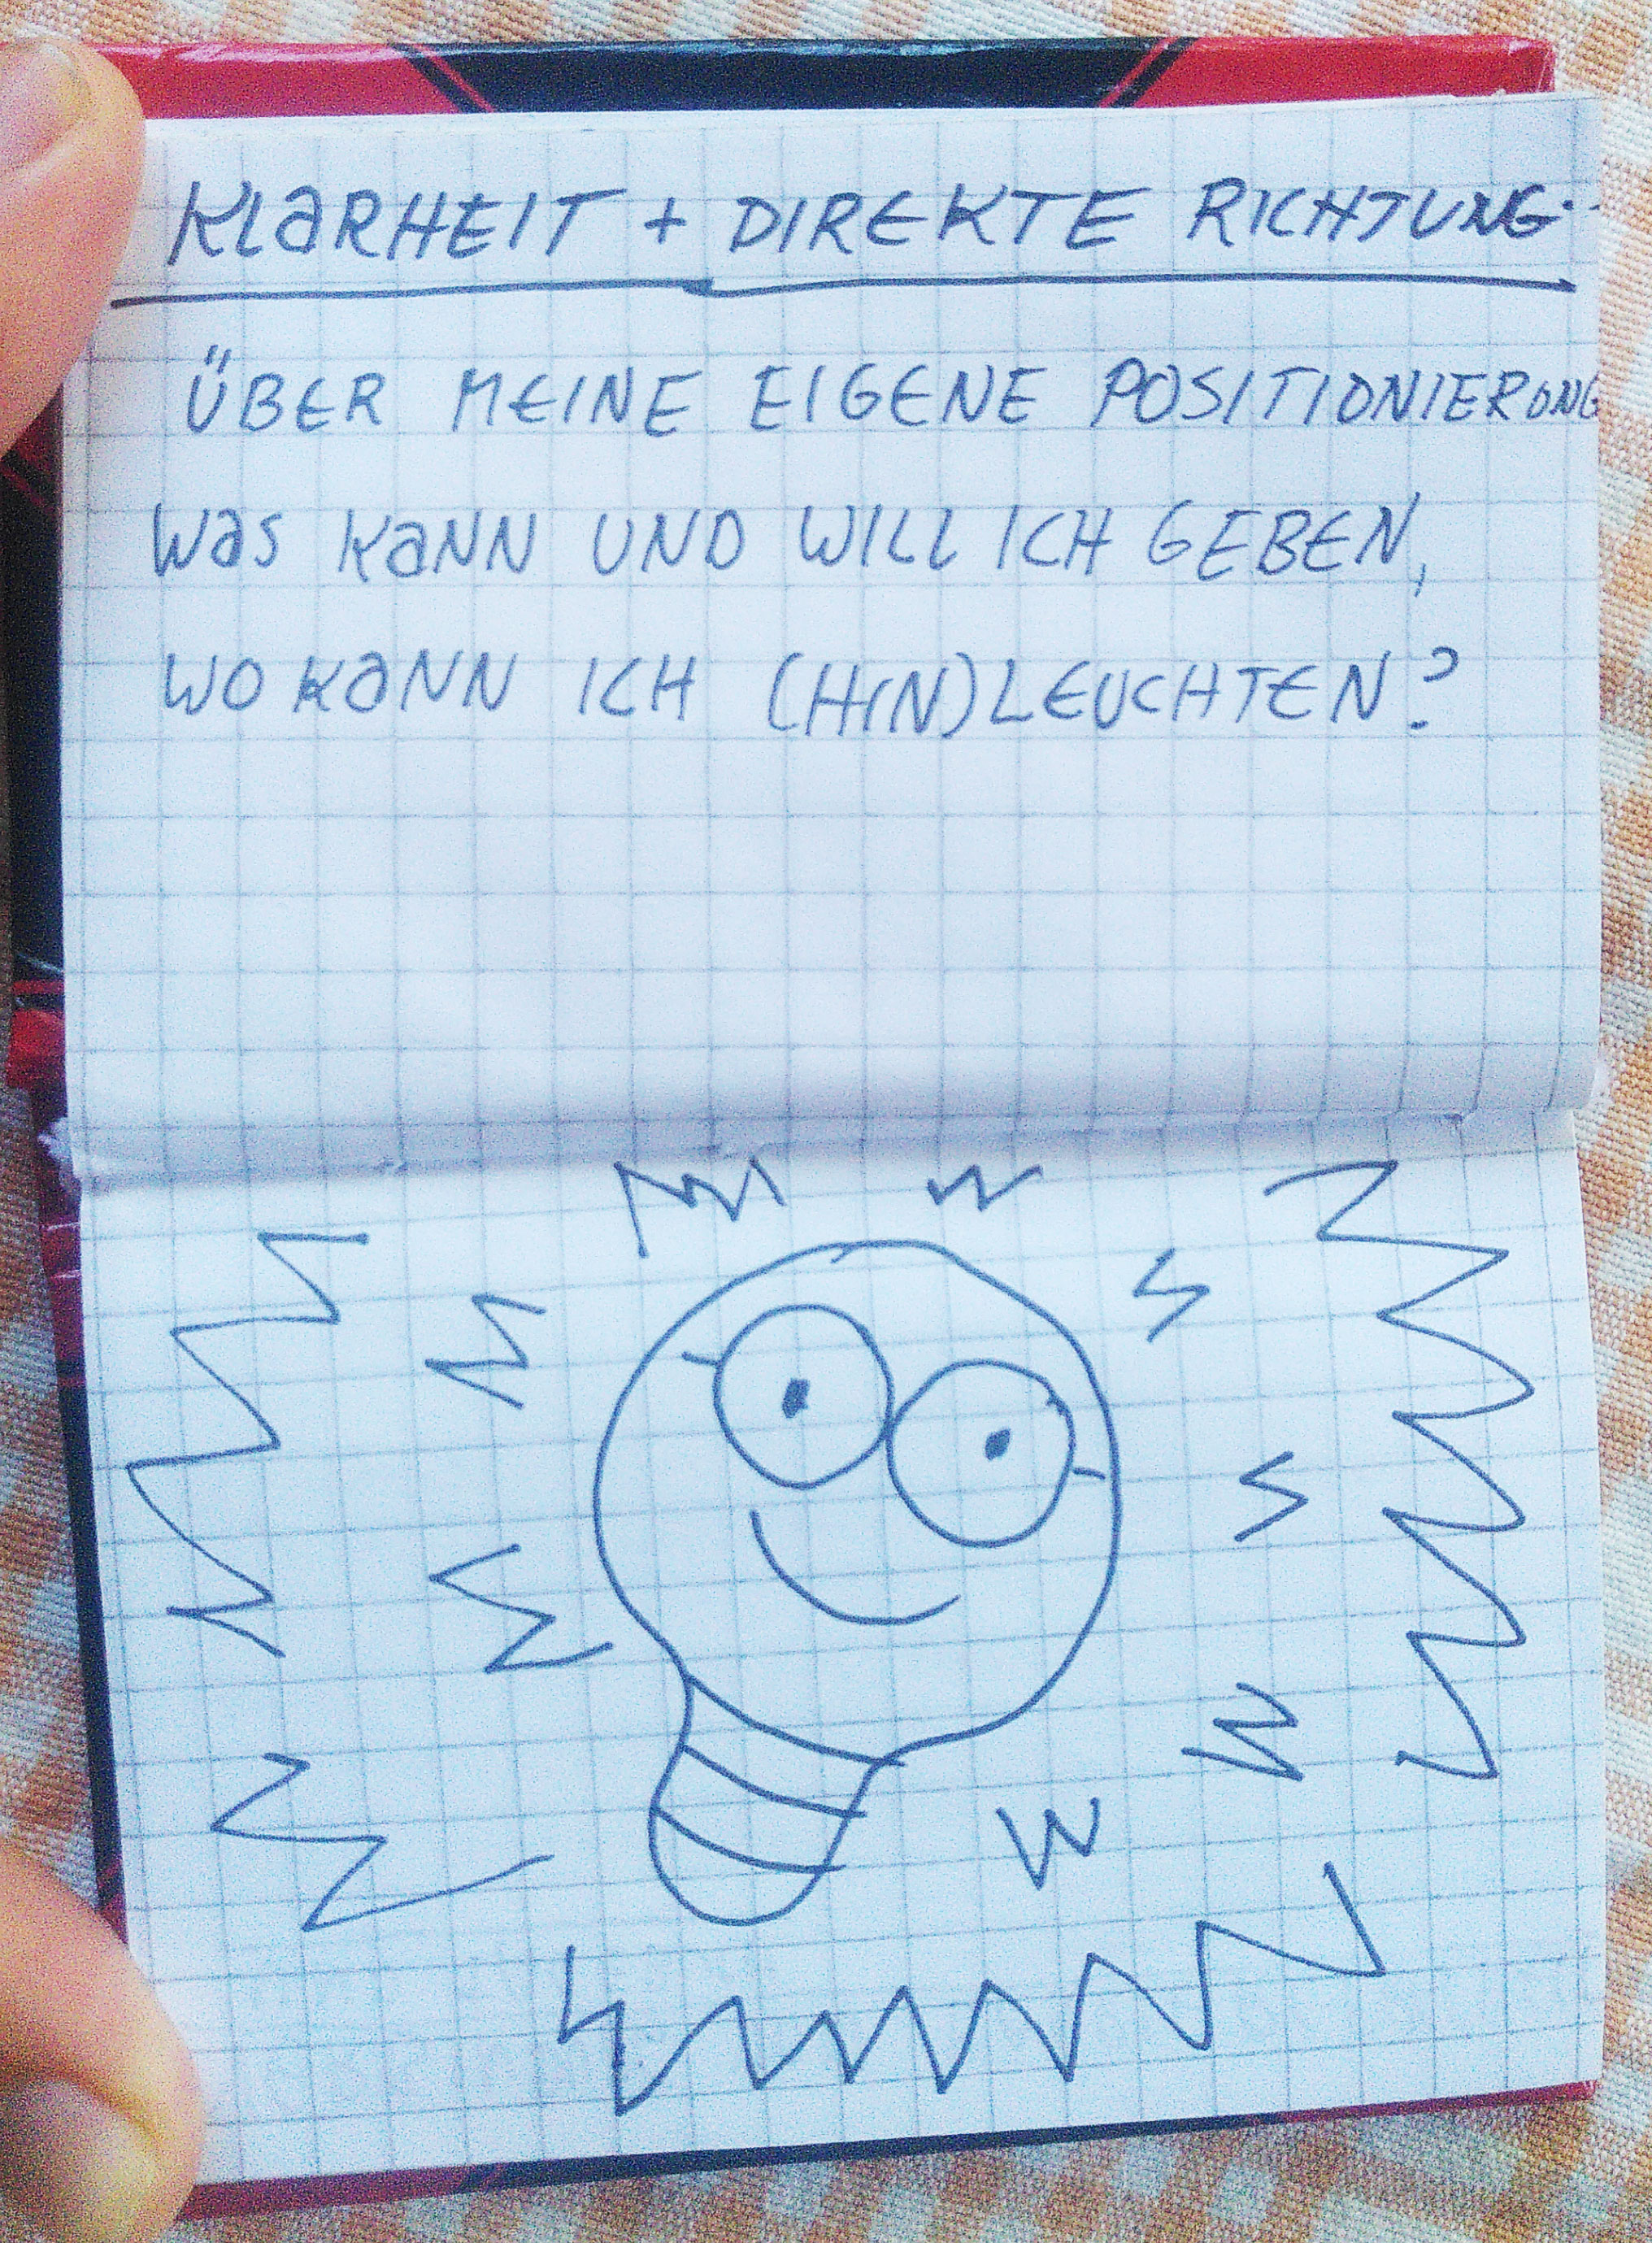 KLaRHEIT + DIREKTE RICHTUNG..
ÜBER MEINE EIGENE POSITIONIERUNG
Was KaNN UND WILL ICH GEBEN,
WO KaNN ICH (HIN)LEUCHTEN?